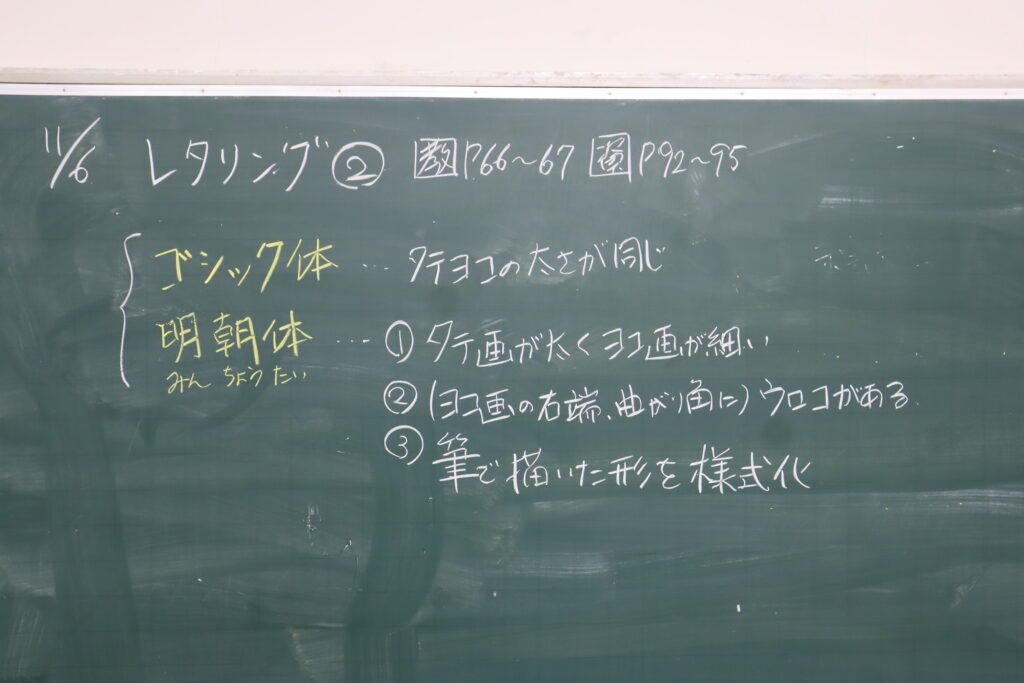 11/6 レタリング② 教P66~67 P92~95
ゴシック体 … タテヨコの太さが同じ
明朝体 … ①タテ画が太くヨコ画が細い
みんちょうたい
②(ヨコ画の右端、曲がり角に)ウロコがある
③筆で描いた形を様式化